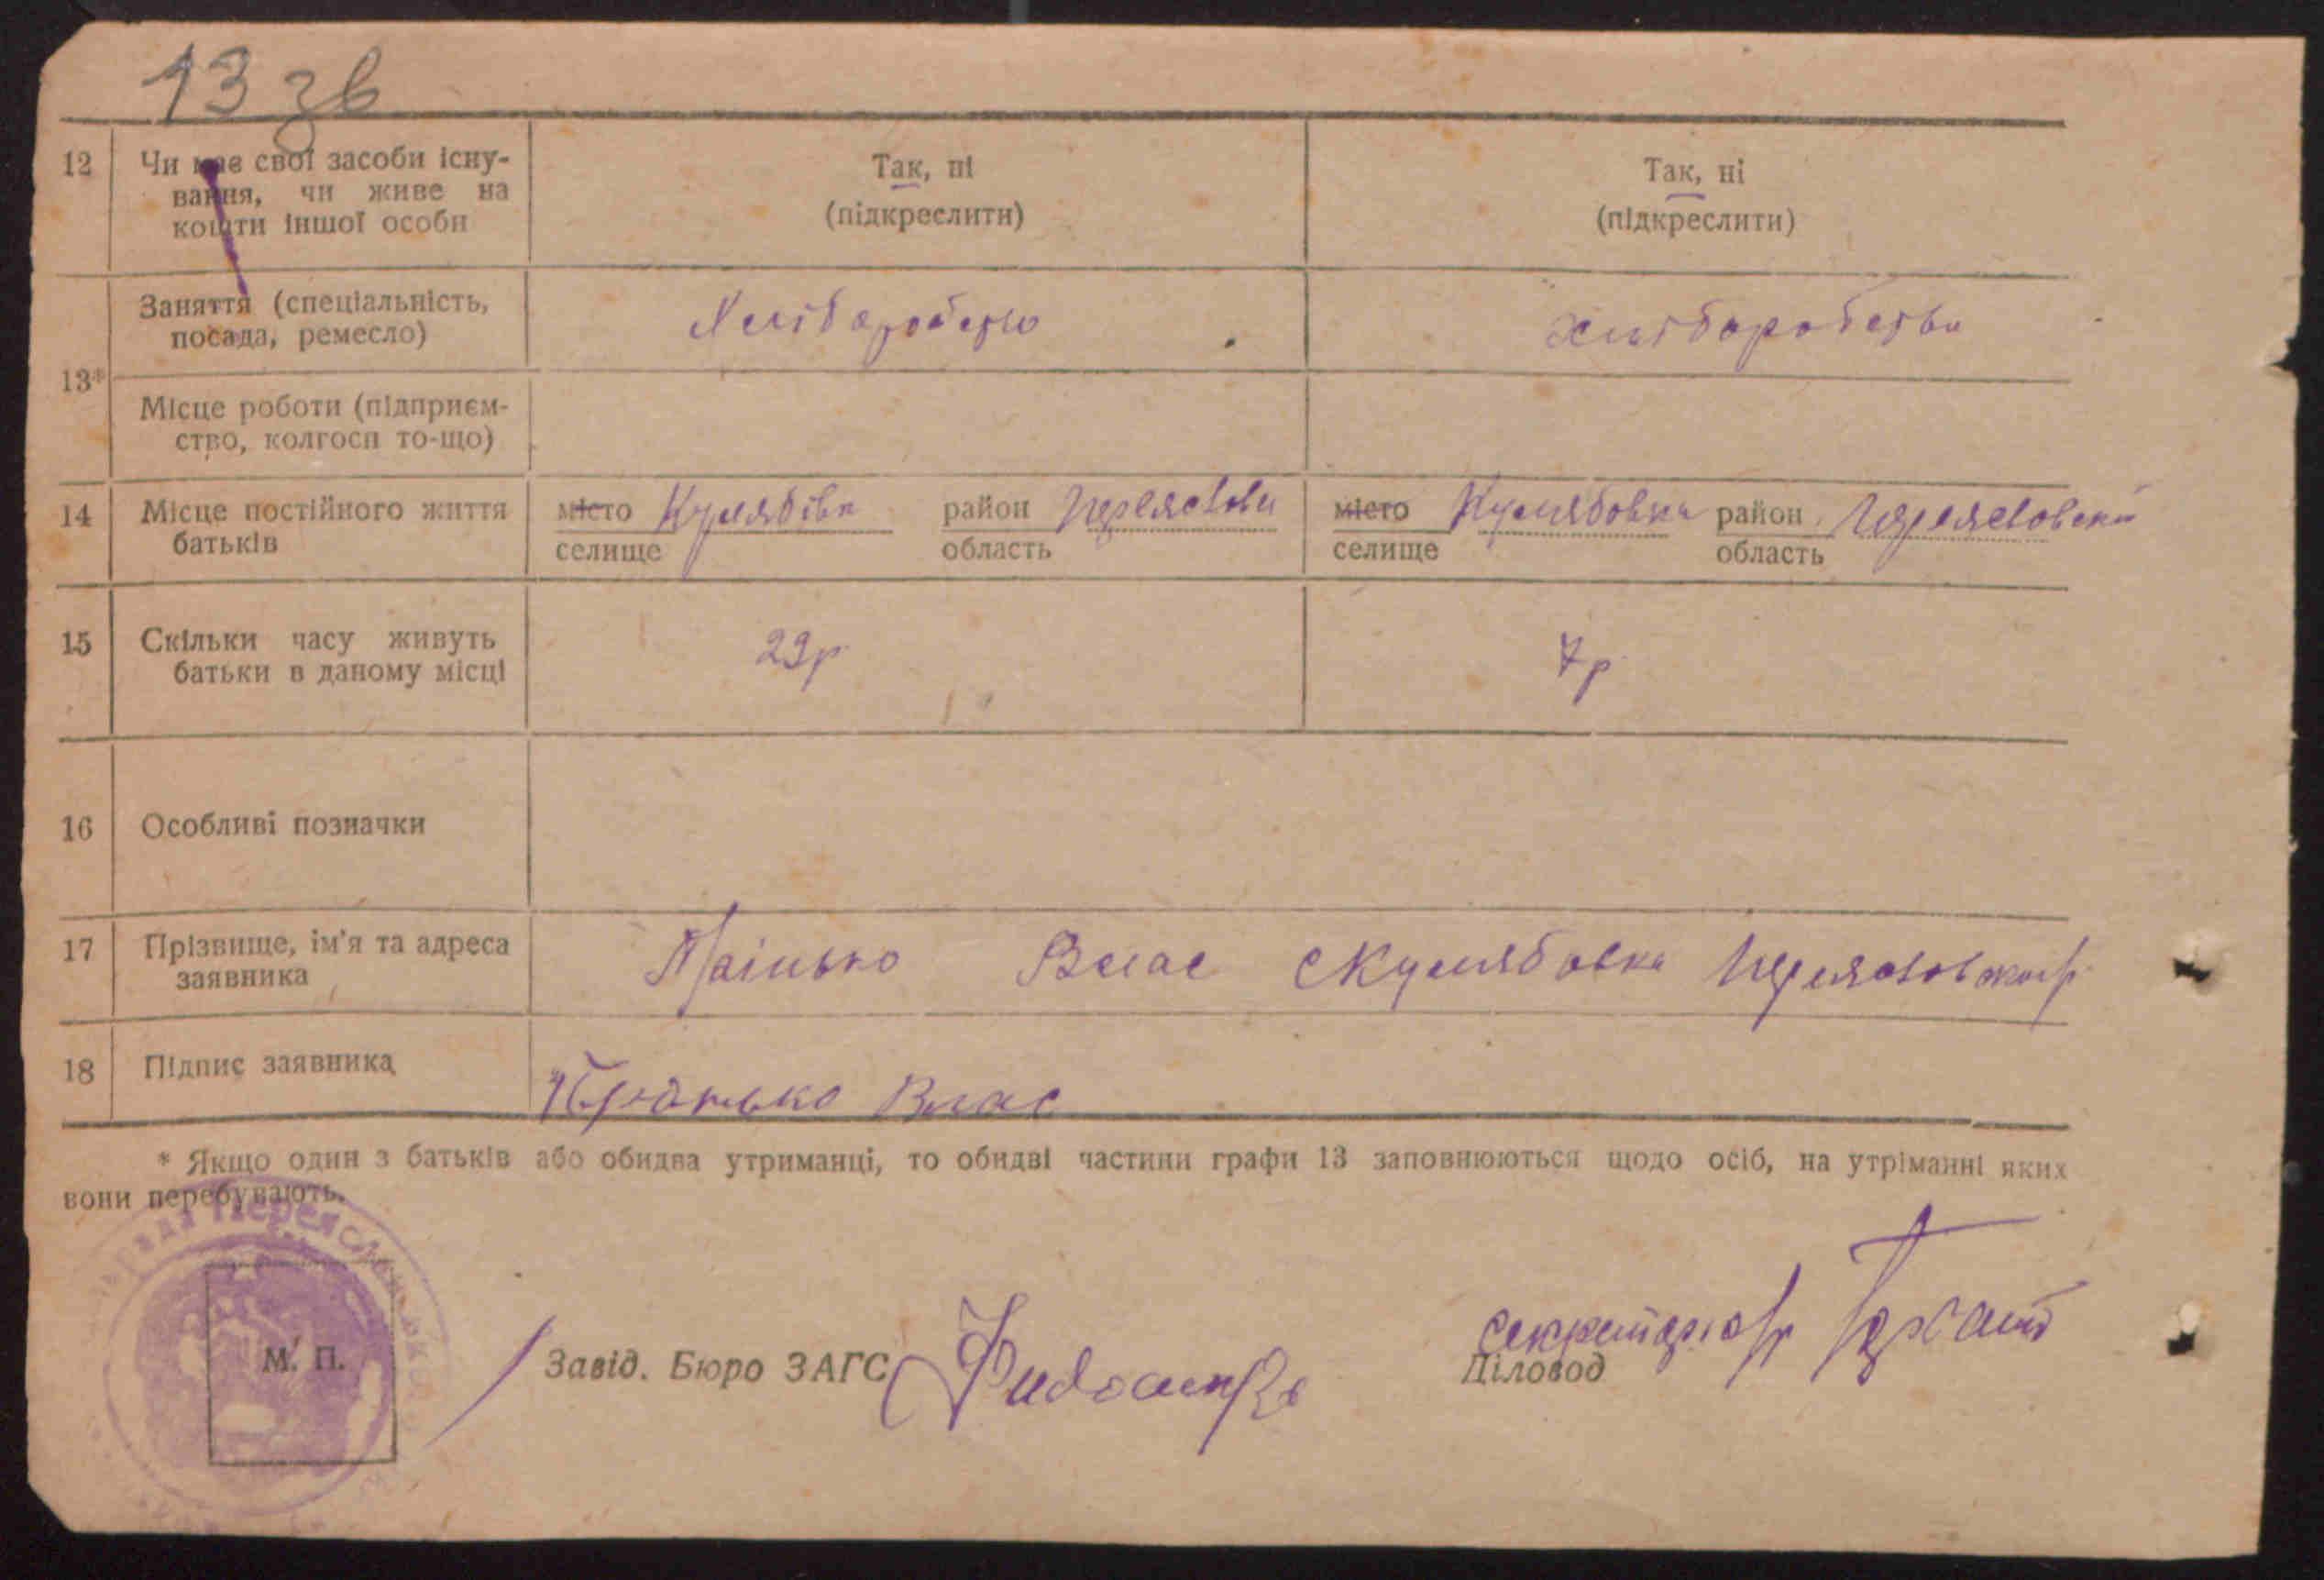 13 зв
12 Чи має свої засоби існу-
вання, чи живе на
кошти іншої особи
Так, ні
(підкреслити)
Так, ні
(підкреслити)
13*
Заняття (спеціальність,
посада, ремесло)
Хліборобство
Хліборобства
Місце роботи (підприєм-
ство, колгосп то-що)
14 Місце постійного життя
батьків
місто Кулябівка район Переяслови
селище область
місто Кулябовка район Переясловский
селище область
15 Скільки часу живуть
батьки в даному місці
29р
7р
16 Особливі позначки
17 Прізвище, ім'я та адреса
заявника
Влас с Кулябовка
18 Підпис заявника
Влас
* Якщо один з батьків або обидва утриманці, то обидві частини графи 13 заповнюються щодо осіб, на утріманні яких
вони перебувають.
М. П.
Завід. Бюро ЗАГС
секретарь
Діловод